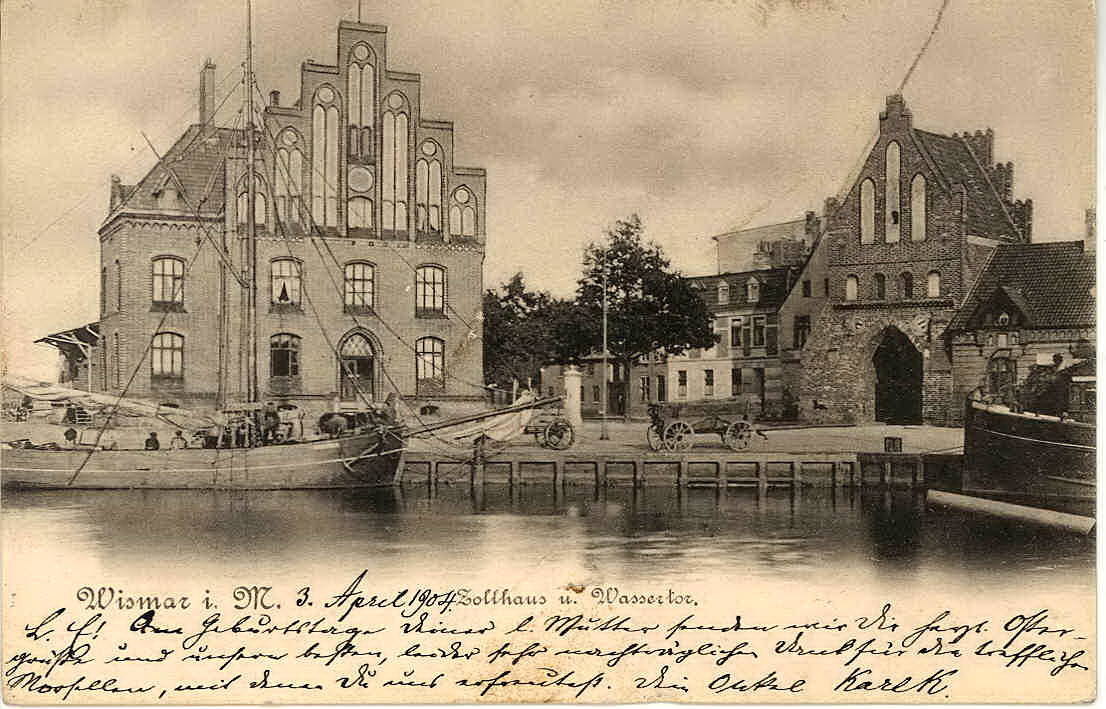 Wismar i. M. 3. April 1904. Zollhaus u. Wassertor.
L. E! Am Geburtstage deiner l. Mutter senden wir Dir herzl. Oster-
grüße und unsern besten, leider sehr nachträglichen Dank für die trefflichen
Morsellen, mit denen Du uns erfreutest. Dein Onkel Karl K.